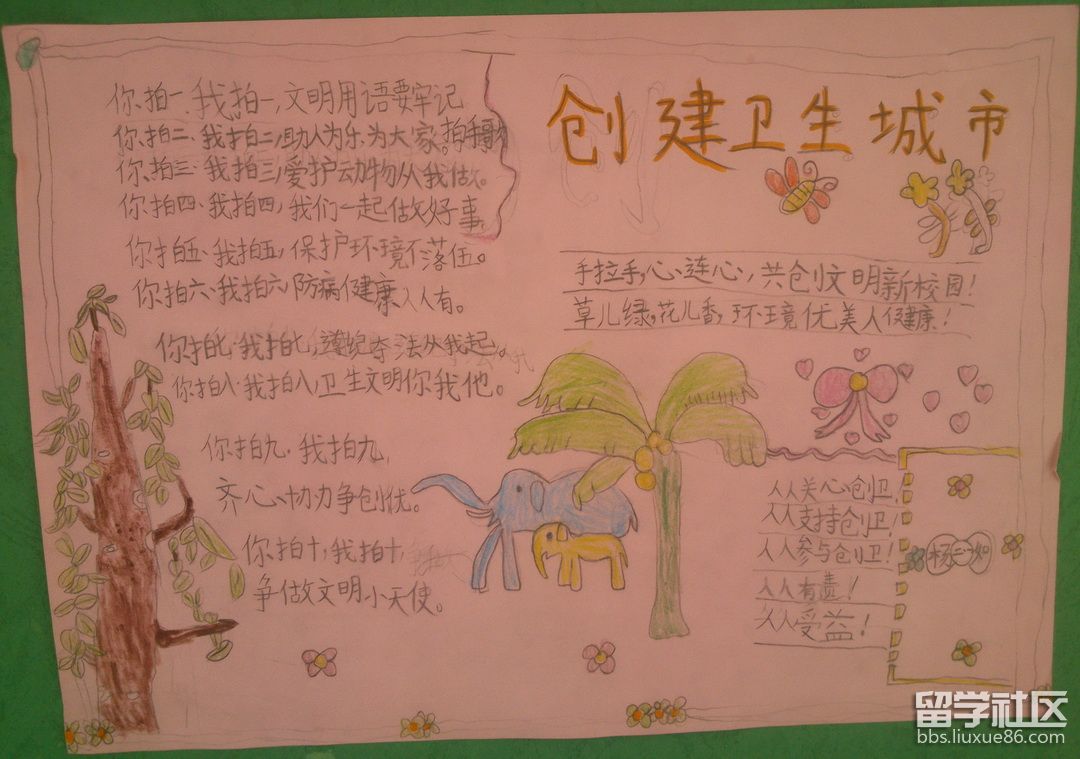 创建卫生城市
你拍一.我拍一,文明用语要牢记
你拍二、我拍二,助人为乐、为大家。拍手
你拍三、我拍三,爱护动物从我做。
你拍四、我拍四,我们一起做好事,
你拍五、我拍五,保护环境不落伍。
你拍六、我拍六,防病健康人人有。
你拍七、我拍七,遵纪守法从我起。
你拍八、我拍八,卫生文明你我他。
你拍九.我拍九,
齐心、协力争创优。
你拍十,我拍十,
争做文明小天使。
手拉手,心连心,共创文明新校园!
草儿绿,花儿香,环境优美人健康!
人人关心创卫,
人人支持创卫!
人人参与创卫!
人人有责!
人人受益!
留学社区
bbs.liuxue86.com